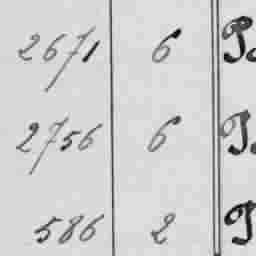 2671 6 P
2756 6 P
586 2 P